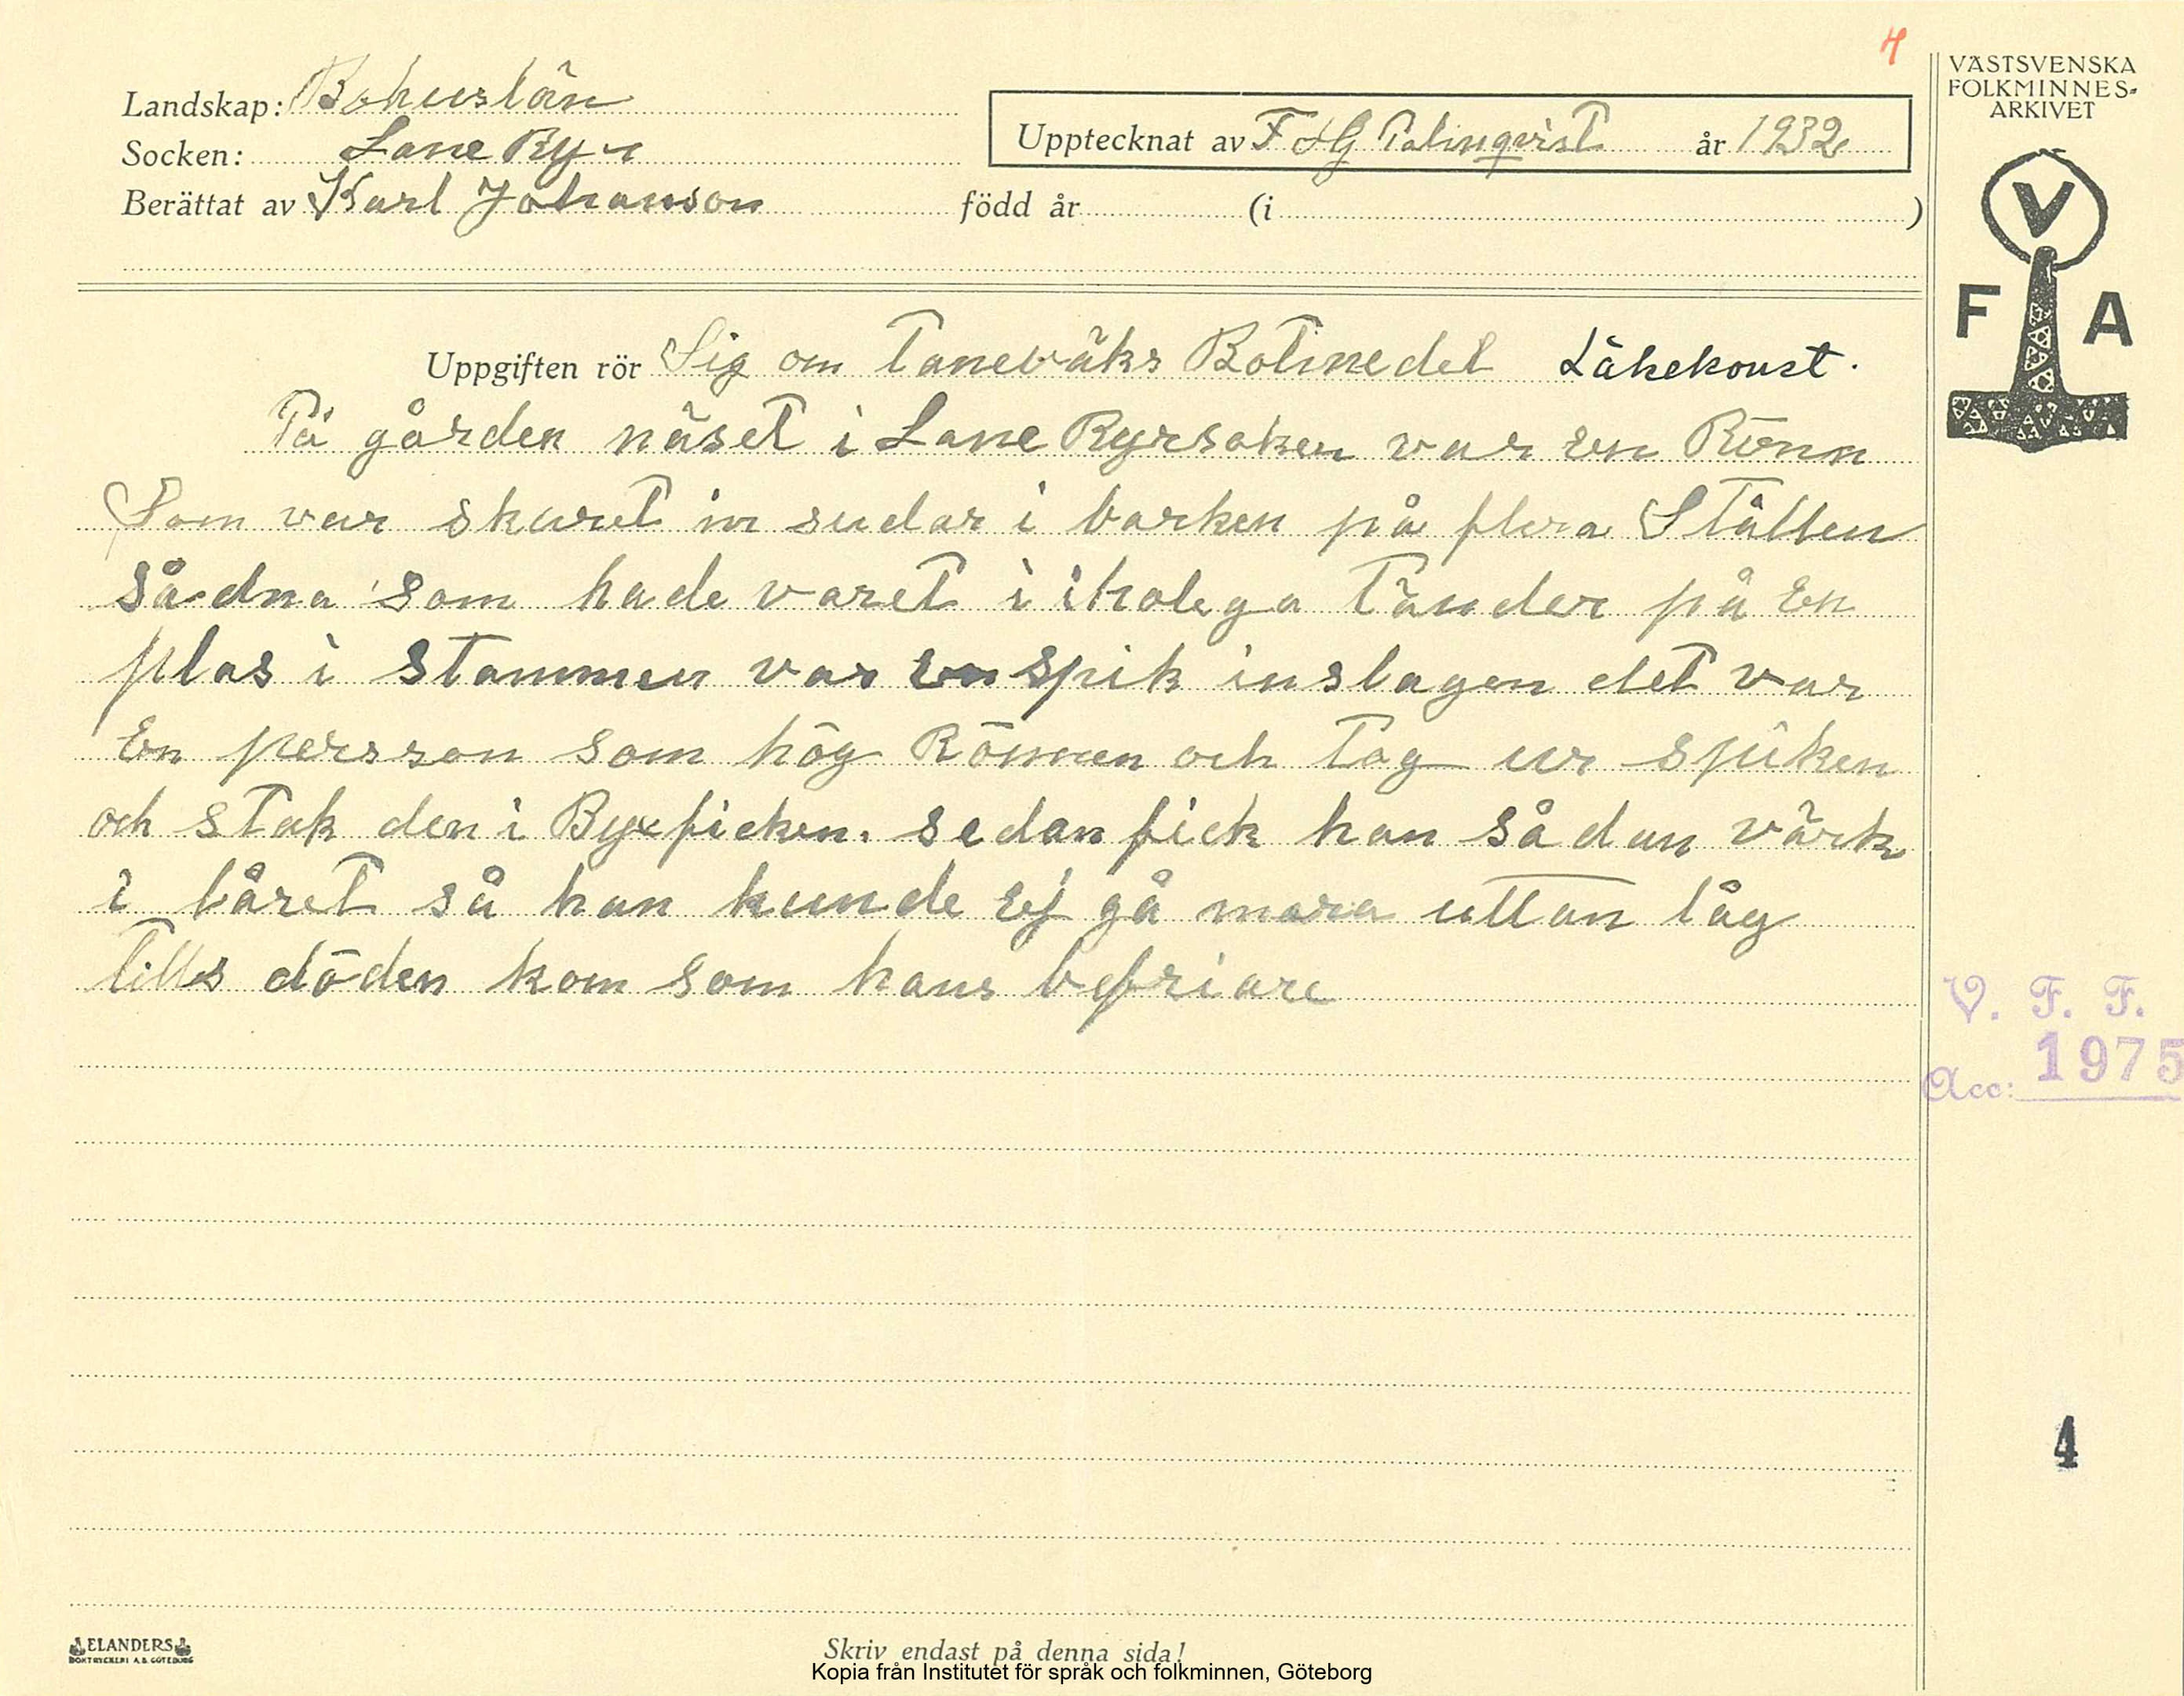 4
VÄSTSVENSKA
FOLKMINNES-
ARKIVET
Landskap: Bohuslän
Socken: Lane Ryr
Upptecknat av F H G Palmqvist år 1932
Berättat av Karl Johanson född år (i )
V
F A
Uppgiften rör Sig om Tanevärks Botmedel Läkekonst.
På gården näset i Lane Ryrsoken var en Rönn
Som var skuret in sudar i barken på flera Ställen
Sådna som hade varet i ihålega Tänder på En
plas i stammen var en spik inslagen det var
En persson som hög Rönnen och Tog ur spiken
och stak den i Byxficken. sedan fick han sådan värk
i låret så han kunde ej gå mera uttan låg
tills döden kom som hans befriare
V. F. F.
Acc: 1975
4
ELANDERS
BOKTRYCKERI A.B. GÖTEBORG
Skriv endast på denna sida!
Kopia från Institutet för språk och folkminnen, Göteborg